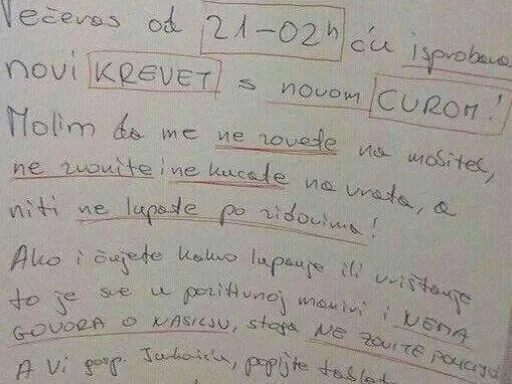 Večeras od 21-02h ću isprobava
novi KREVET s novom CUROM!
Molim da me ne zovete na mobitel,
ne zvonite i ne kucate na vrata, a
niti ne lupate po zidovima!
Ako i čujete kakvo lupanje ili vrištanje
to je sve u pozitivnoj manivi i NEMA
GOVORA O NASILJU, stoga NE ZOVITE POLICIJU
A Vi gosp. popijte